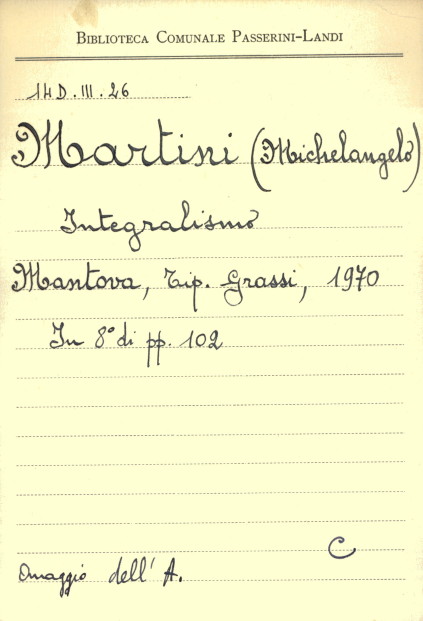 BIBLIOTECA COMUNALE PASSERINI-LANDI
14 D. III. 26
Martini (Michelangelo)
Integralismo
Mantova, Tip. Grassi, 1970
In 8° di pp. 102
C
Omaggio dell' A.